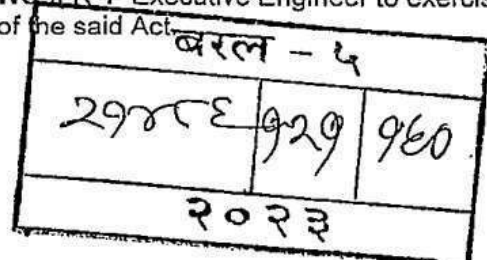 Executive Engineer to exercis
of the said Act
बरल - ५
२१४८६ १२१ १६०
२०२३